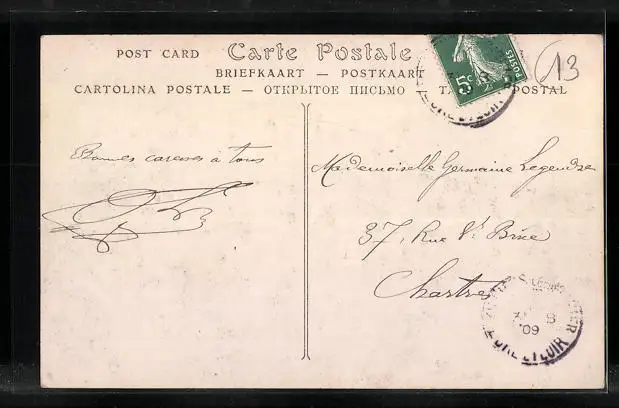 POST CARD Carte Postale
BRIEFKAART — POSTKAART
CARTOLINA POSTALE — ОТКРЫТОЕ ПИСЬМО POSTAL
5c POSTES
13
Bonnes caresses à tous
Mademoiselle Germaine Legendre
37, Rue St Brice
Chartres
8
09
EURE ET LOIR